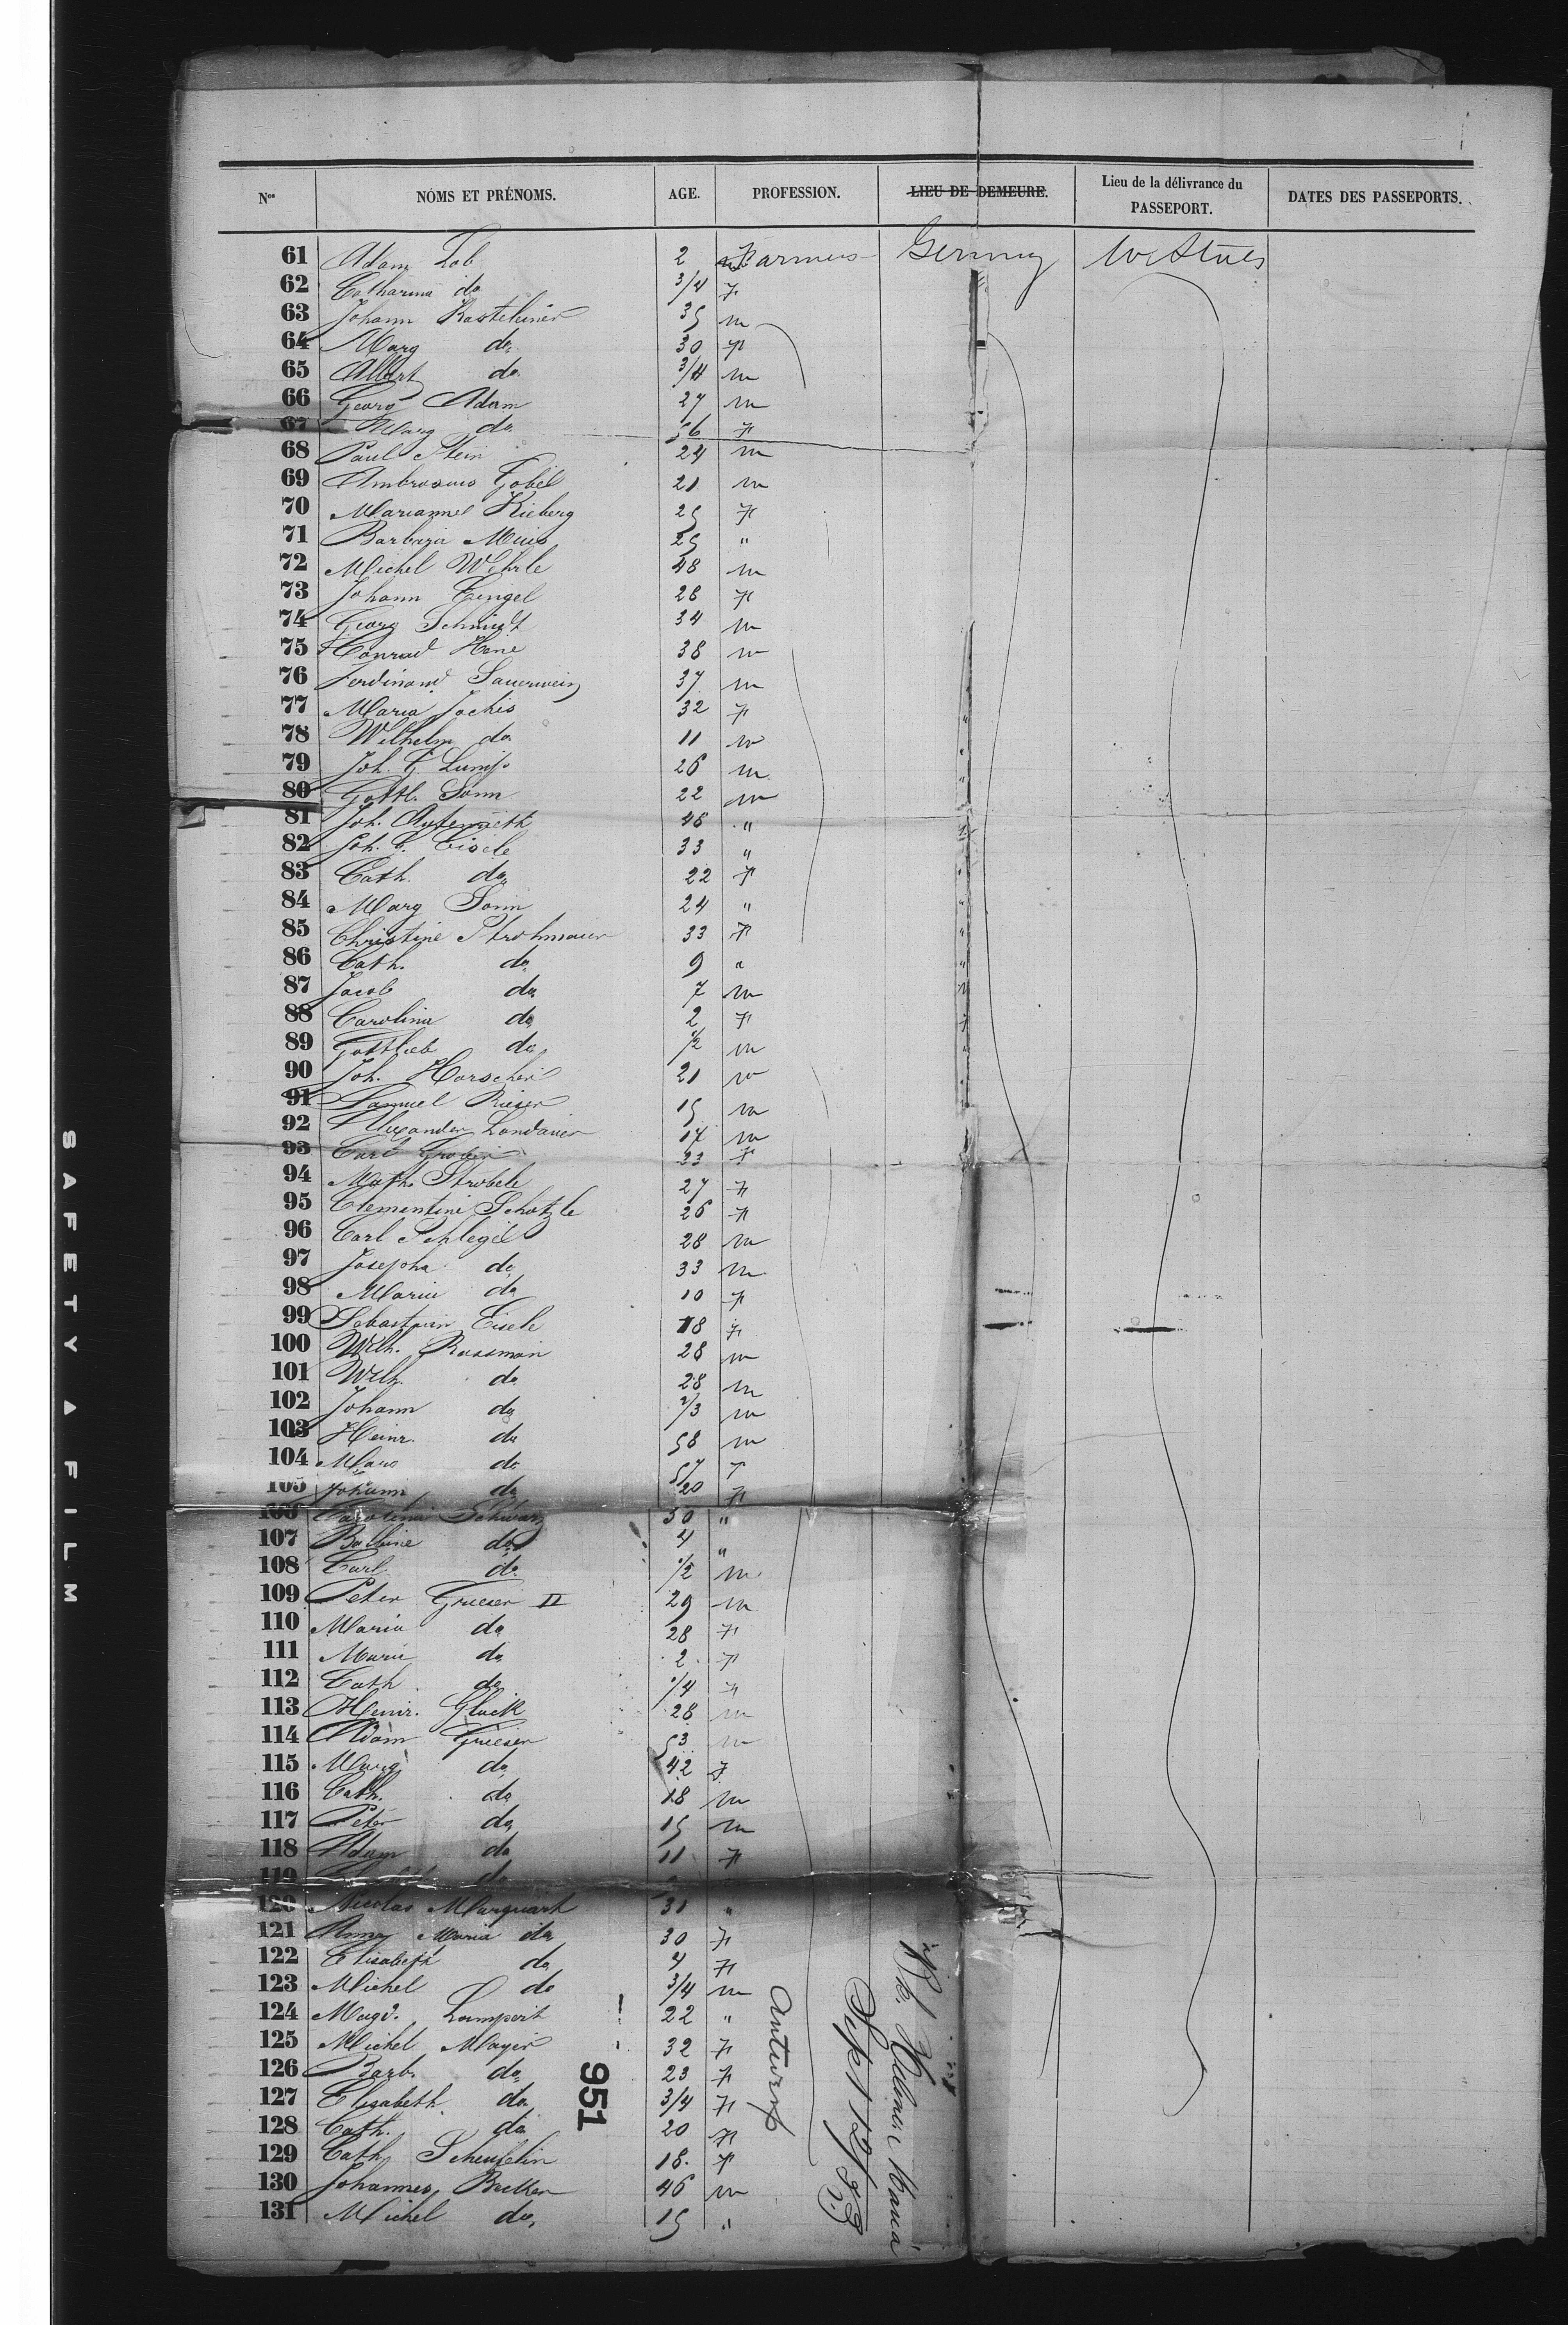 Nos NOMS ET PRÉNOMS. AGE. PROFESSION. LIEU DE DEMEURE. Lieu de la délivrance du PASSEPORT. DATES DES PASSEPORTS.
61 Adam Lob 2 m Farmers Germany U States
62 Catharina do 3/4 F
63 Johann Kasteleiner 35 m
64 Marg do 30 F
65 Albert do 3/4 m
66 Georg Adam 27 m
67 Marg do 56 F
68 Paul Stein 24 m
69 Ambrosius Gobel 21 m
70 Mariannel Kieberg 25 F
71 Barbara 25 "
72 Michel Wehrle 48 m
73 Johann Tengel 28 F
74 Georg Schmidt 34 m
75 Conrad 38 m
76 Ferdinand Sauerwein 37 m
77 Maria Jochis 32 F
78 Wilhelm do 11 m
79 Joh. G. 26 m
80 Gottl. Sonn 22 m
81 Joh. Autenrieth 48 "
82 Joh. C. Eisele 33 "
83 Cath. do 22 F
84 Marg Sonn 24 "
85 Christine Strohmaier 33 F
86 Cath. do 9 "
87 Jacob do 7 m
88 Carolina do 2 F
89 Gottlieb do 1/2 m
90 Joh. Horscher 21 m
91 Samuel Rieser 15 m
92 Alexander Landauer 17 m
93 Carl 23 F
94 Math. Strobele 27 F
95 Clementine Schotzle 26 F
96 Carl Schlegel 28 m
97 Josepha do 33 m
98 Marie do 10 F
99 Sebastian Eisele 18 F
100 Wilh. Rossman 28 m
101 Wilh. do 28 m
102 Johann do 2/3 m
103 Heinr. do 58 m
104 do 57 F
105 Johann do 20 F
106 Carolina Schwarz 30 "
107 Balbine do 4 "
108 Carl do 1/2 m
109 Peter Grieser II 29 m
110 Maria do 28 F
111 Marie do 2 F
112 Cath do 1/4 F
113 Heinr. Gluck 28 m
114 Adam Grieser 53 m
115 Marg do 42 F
116 Cath. do 18 m
117 Peter do 15 m
118 Adam do 11 F
119 do
120 Nicolas Marquart 31 "
121 Anna Maria do 30 F
122 Elisabeth do 4 F
123 Michel do 3/4 m
124 Magd. Lampert 22 "
125 Michel Mayer 32 F
126 Barb. do 23 F
127 Elizabeth do 3/4 F
128 Cath. do 20 F
129 Cath. Scheufelin 18 F
130 Johannes Becker 46 m
131 Michel do 15 "
951
Antwerp
Sept 12/53
SAFETY A FILM